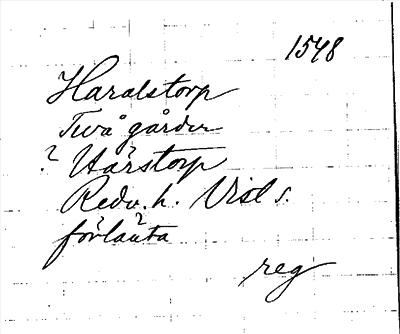 1548
Haralstorp
Två gårder
? Härstorp
Redv. h. Visl s.
förlänta
reg